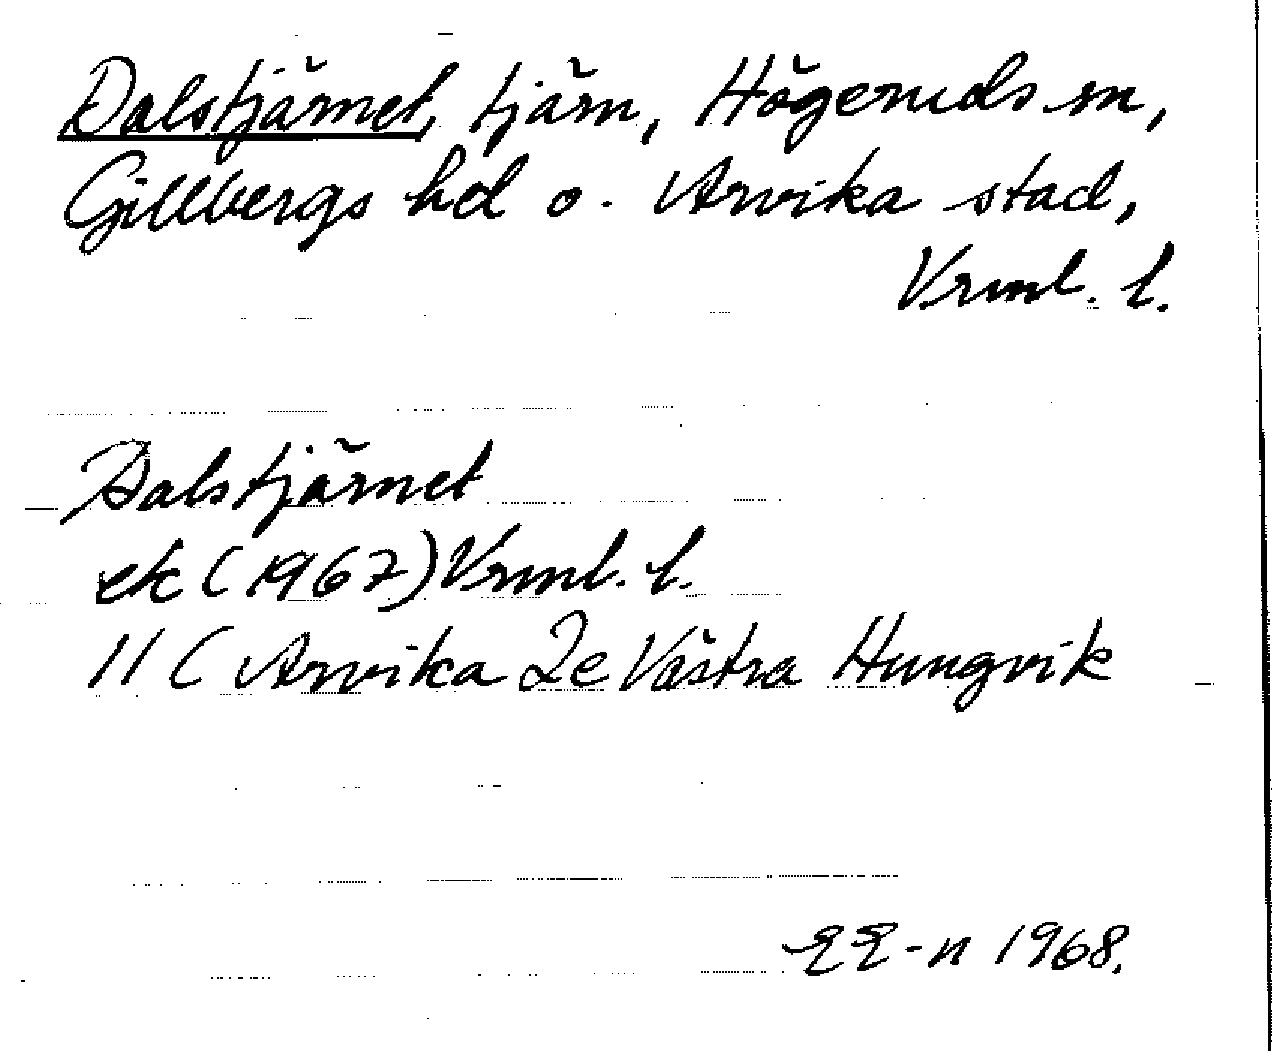 Dalstjärnet, tjärn, Högeruds sn,
Gillbergs hd o. Arvika stad,
Vrml. l.
Dalstjärnet
ek (1967) Vrml. l.
11 C Arvika 2e Västra Hungvik
EE-n 1968.